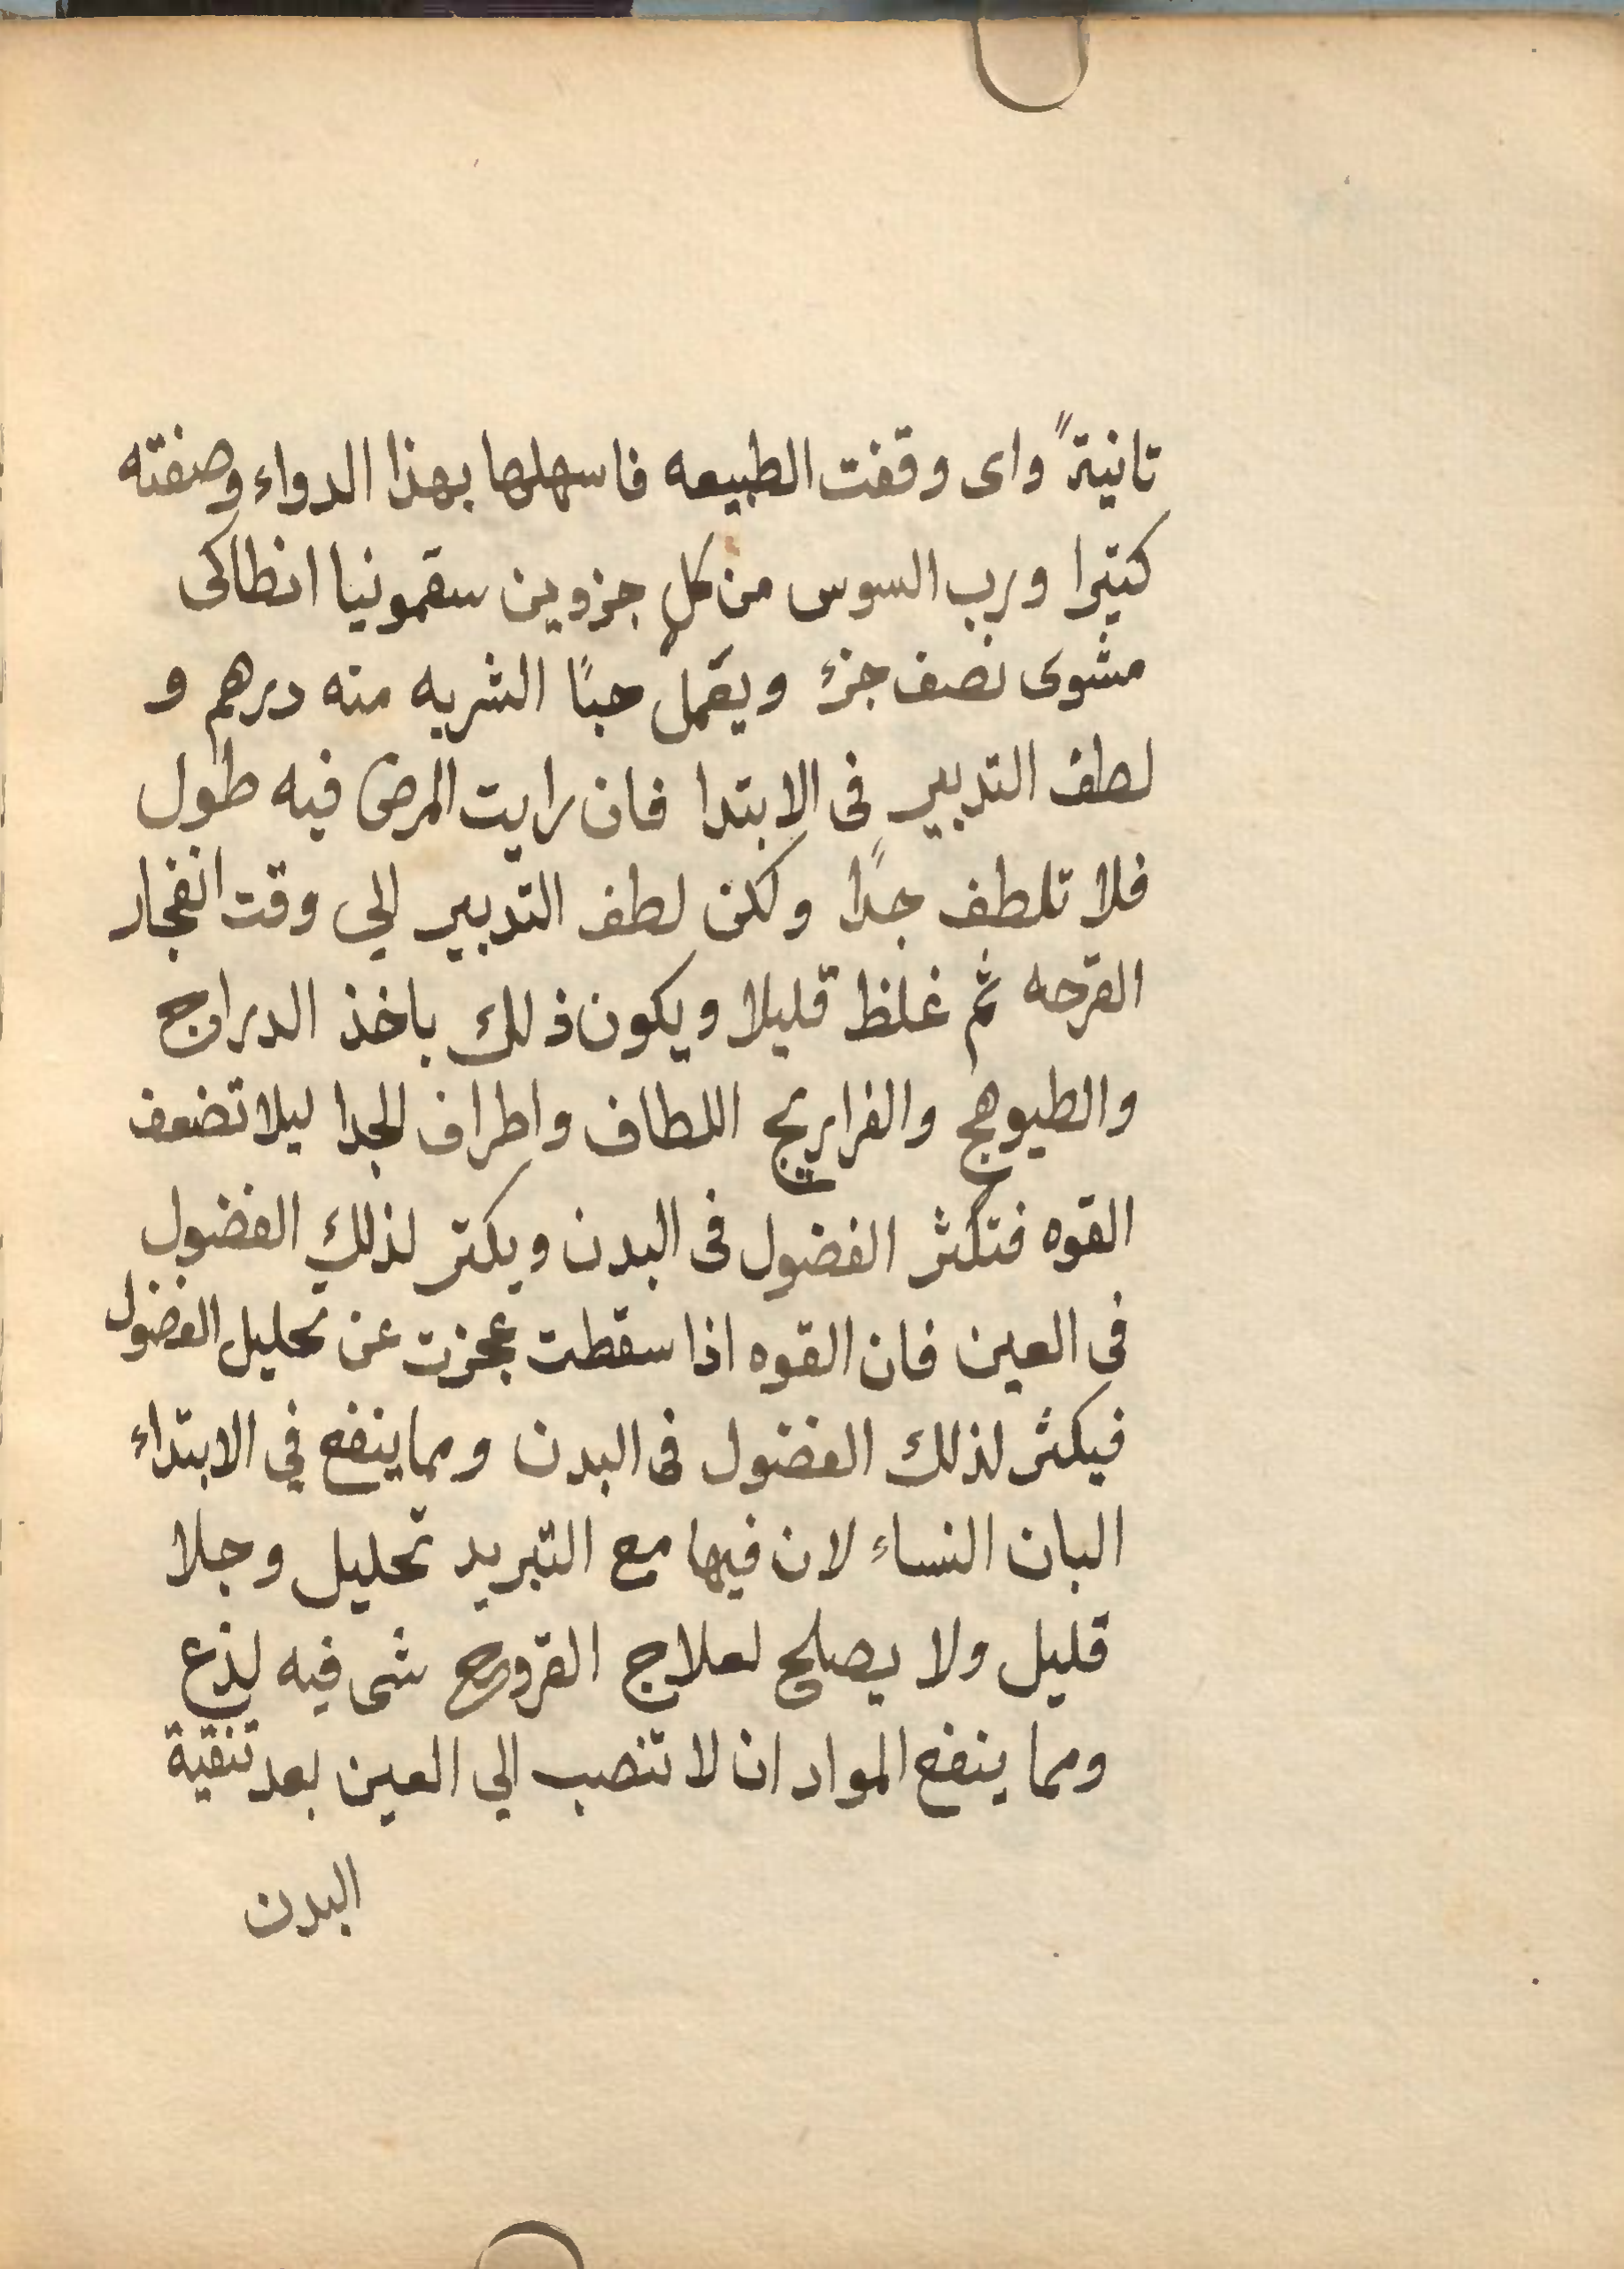 تانيةً واى وقفت الطبيعه فاسهلها بهذا الدواء وصفته
كتيرا ورب السوس من كل جزوين سقمونيا انطاكى
مشوى نصف جزء ويعمل حبًا الشربه منه درهم و
لطف التدبير فى الابتدا فان رايت المرض فيه طول
فلا تلطف جدًا ولكن لطف التدبير الي وقت انفجار
القرحه ثم غلظ قليلا ويكون ذلك باخذ الدراج
والطيوهج والفراريج اللطاف واطراف الجدا ليلا تضعف
القوه فتكثر الفضول فى البدن ويكتر لذلك الفضول
فى العين فان القوه اذا سقطت عجزت عن تحليل الفضول
فيكثر لذلك الفضول فى البدن ومما ينفع في الابتداء
البان النساء لان فيها مع التبريد تحليل وجلا
قليل ولا يصلح لعلاج القروح شى فيه لذع
ومما ينفع المواد ان لا تنصب الي العين بعد تنقية
البدن